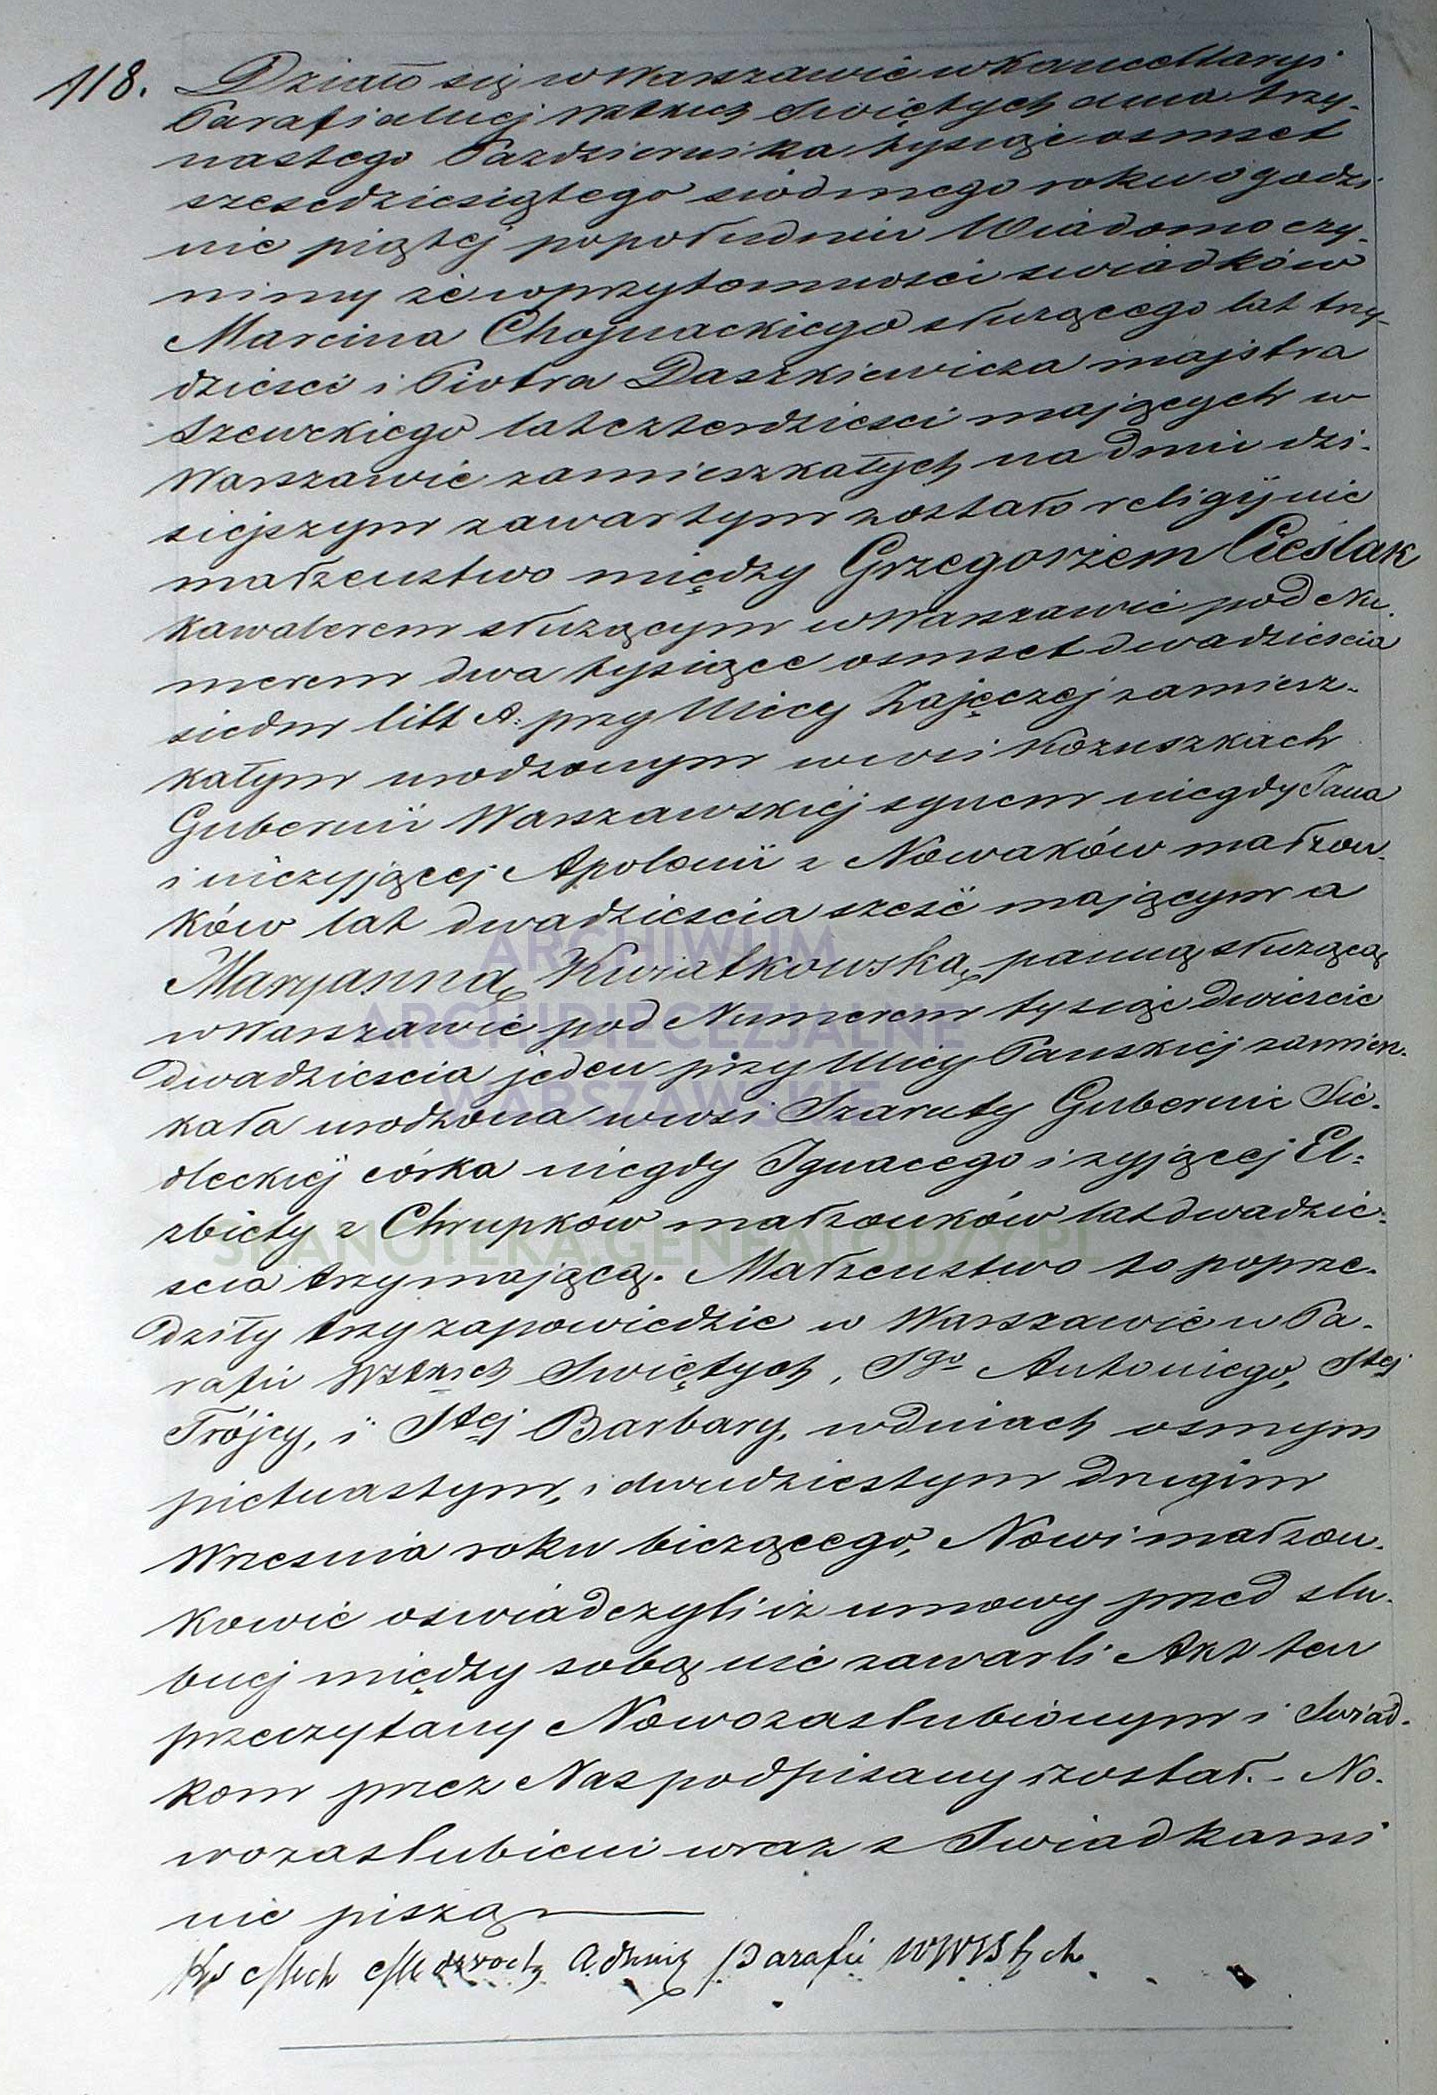 118. Działo się w Warszawie w Kancellaryi
Parafialnej Wsztkich Swiętych dnia trzy-
nastego Pazdziernika tysiąc osmset
szescdziesiątego siódmego roku o godzi
nie piątej popołudniu Wiadomo czy-
nimy że w przytomnosci swiadków
Marcina Chojnackiego służącego lat trzy-
dziesci i Piotra Daszkiewicza majstra
szewckiego lat czterdziesci mających w
Warszawie zamieszkałych na dniu dzi-
siejszym zawartym zostało religijnie
małzenstwo między Grzegorżem Cieślak
kawalerem służącym w Warszawie pod Nu.
merem dwa tysiące osmset dwadziescia
siedm litt A. przy Ulicy Zajęczej zamiesz-
kałym urodzonym we wsi Kozuszkach
Gubernii Warszawskiej synem niegdy Jana
i niezyjącej Apolonii z Nowaków małzon-
ków lat dwadziescia szesć mającym a
Maryanną Kwiatkowską panną służącą
w Warszawie pod Numerem tysiąc dwiescie
dwadziescia jeden przy Ulicy Panskiej zamiesz-
kała urodzona we wsi Szaruty Gubernii Sie-
dleckiej córka niegdy Ignacego i zyjącej El-
zbiety z Chrupków małzonków lat dwadzie-
scia trzy mającą. Małzenstwo to poprze-
dziły trzy zapowiedzie w Warszawie w Pa-
rafii Wsztkich Swiętych, Sgo Antoniego, Stej
Trójcy, i Stej Barbary, w dniach osmym
pietnastym, i dwudziestym drugim
Wrzesnia roku bieżącego, Nowi małzon-
kowie oswiadczyli iz umowy przed slu-
bnej między sobą nie zawarli Akt ten
przeczytany Nowozaslubionym i Swiad-
kom przez Nas podpisany został. - No-
wozaslubieni wraz z Swiadkami
nie piszą
Ks Adminis Parafii WWSStych
ARCHIWUM
ARCHIDIECEZJALNE
WARSZAWSKIE
SKANOTEKA.GENEALODZY.PL